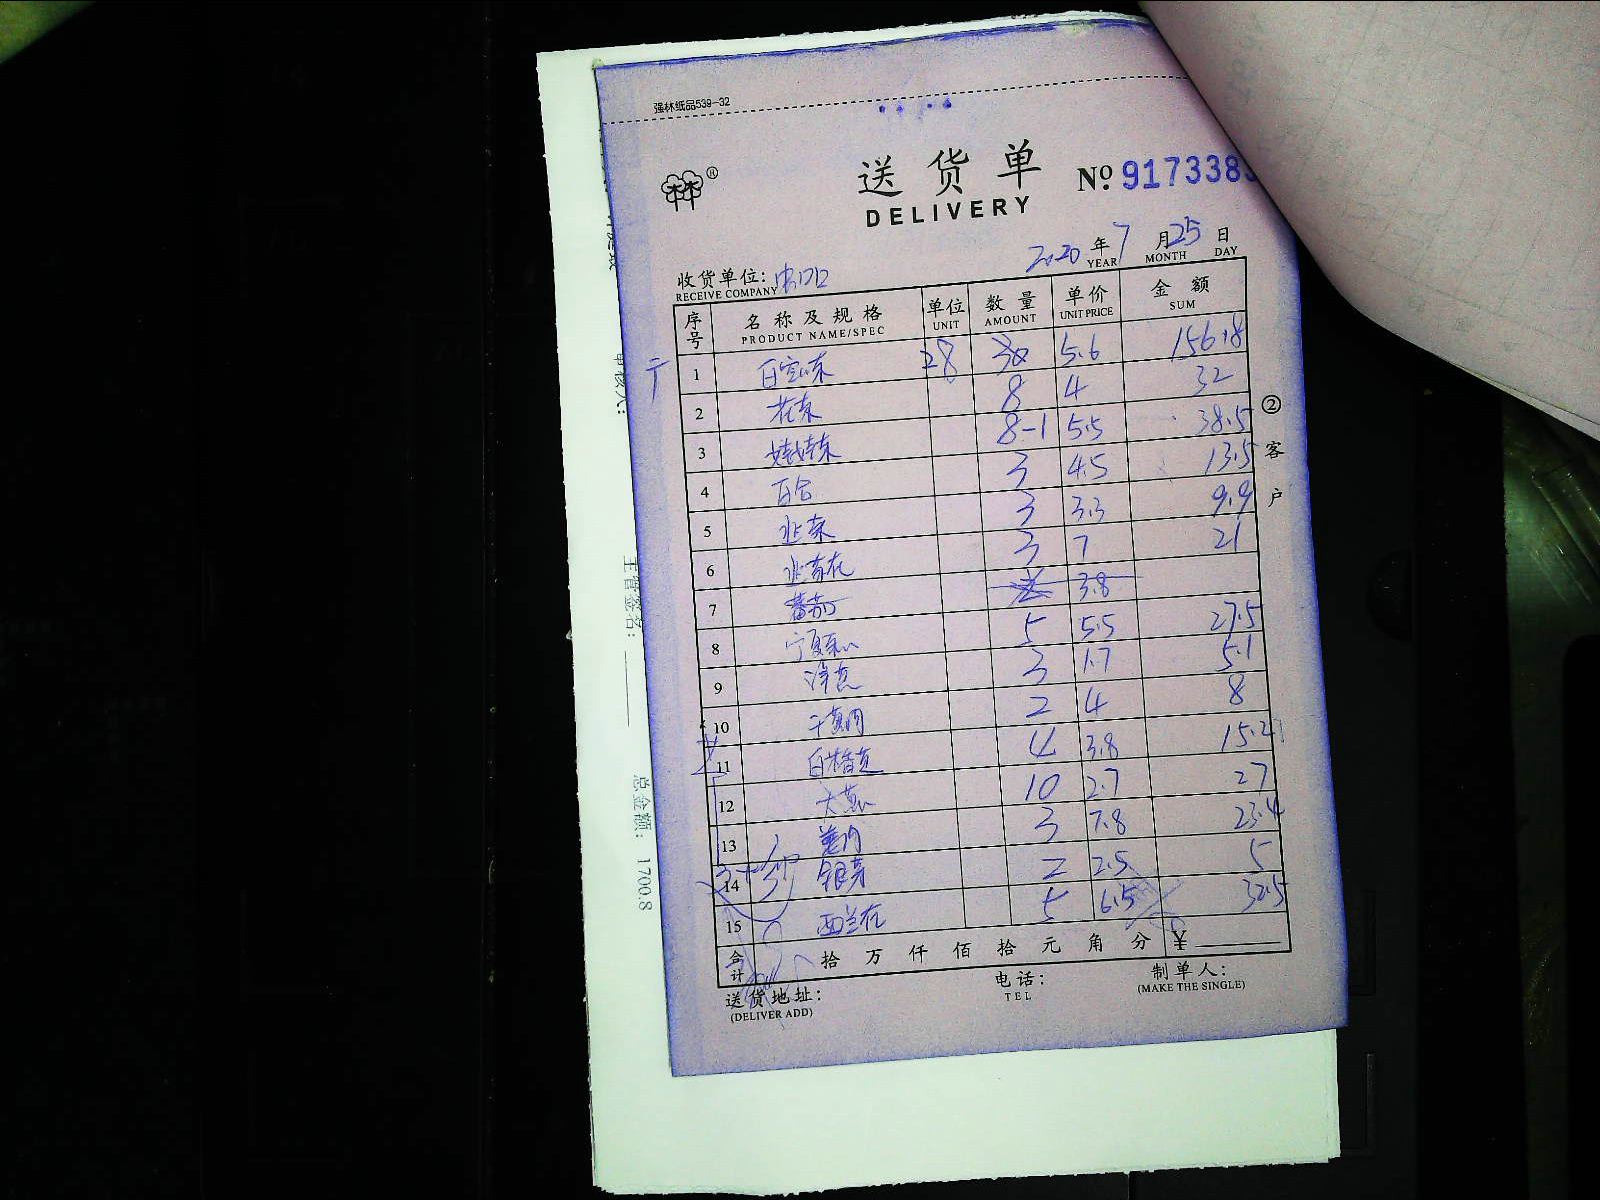 强林纸品539-32
送货单
DELIVERY
№ 917338
2020年7月25日
YEAR MONTH DAY
收货单位:
RECEIVE COMPANY
序号 名称及规格 单位 数量 单价 金额
PRODUCT NAME/SPEC UNIT AMOUNT UNIT PRICE SUM
1 28 5.6 156.8
2 花菜 8 4 32
3 8-1 5.5 38.5
4 百合 3 4.5 13.5
5 韭菜 3 3.3 9.9
6 韭菜花 3 7 21
7 番茄 3.8
8 5 5.5 27.5
9 洋葱 3 1.7 5.1
10 2 4 8
11 4 3.8 15.2
12 大葱 10 2.7 27
13 姜肉 3 7.8 23.4
14 银芽 2 2.5 5
15 西兰花 5 6.5 32.5
合计 拾 万 仟 佰 拾 元 角 分 ¥
送货地址: 电话: 制单人:
(DELIVER ADD) TEL (MAKE THE SINGLE)
② 客户
主管签名:
总金额: 1700.8